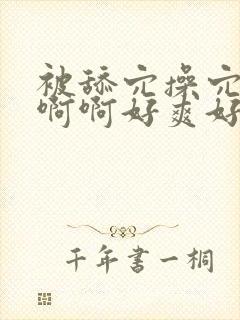 被舔穴操穴
啊啊好爽好
千年书一桐